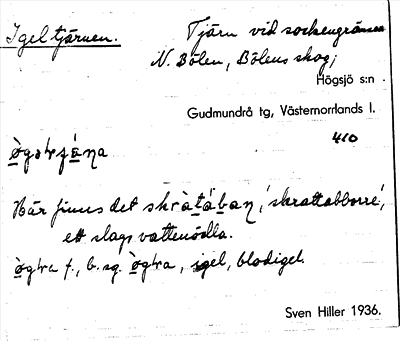 Igeltjärnen.
Tjärn vid sockengränsen
N. Bölen, Bölens skog,
Högsjö s:n.
Gudmundrå tg, Västernorrlands l.
410
Här finns det skràtàban, 'skrattabborre',
ett slags vattenödla.
f., b. sg. igel, blodigel.
Sven Hiller 1936.